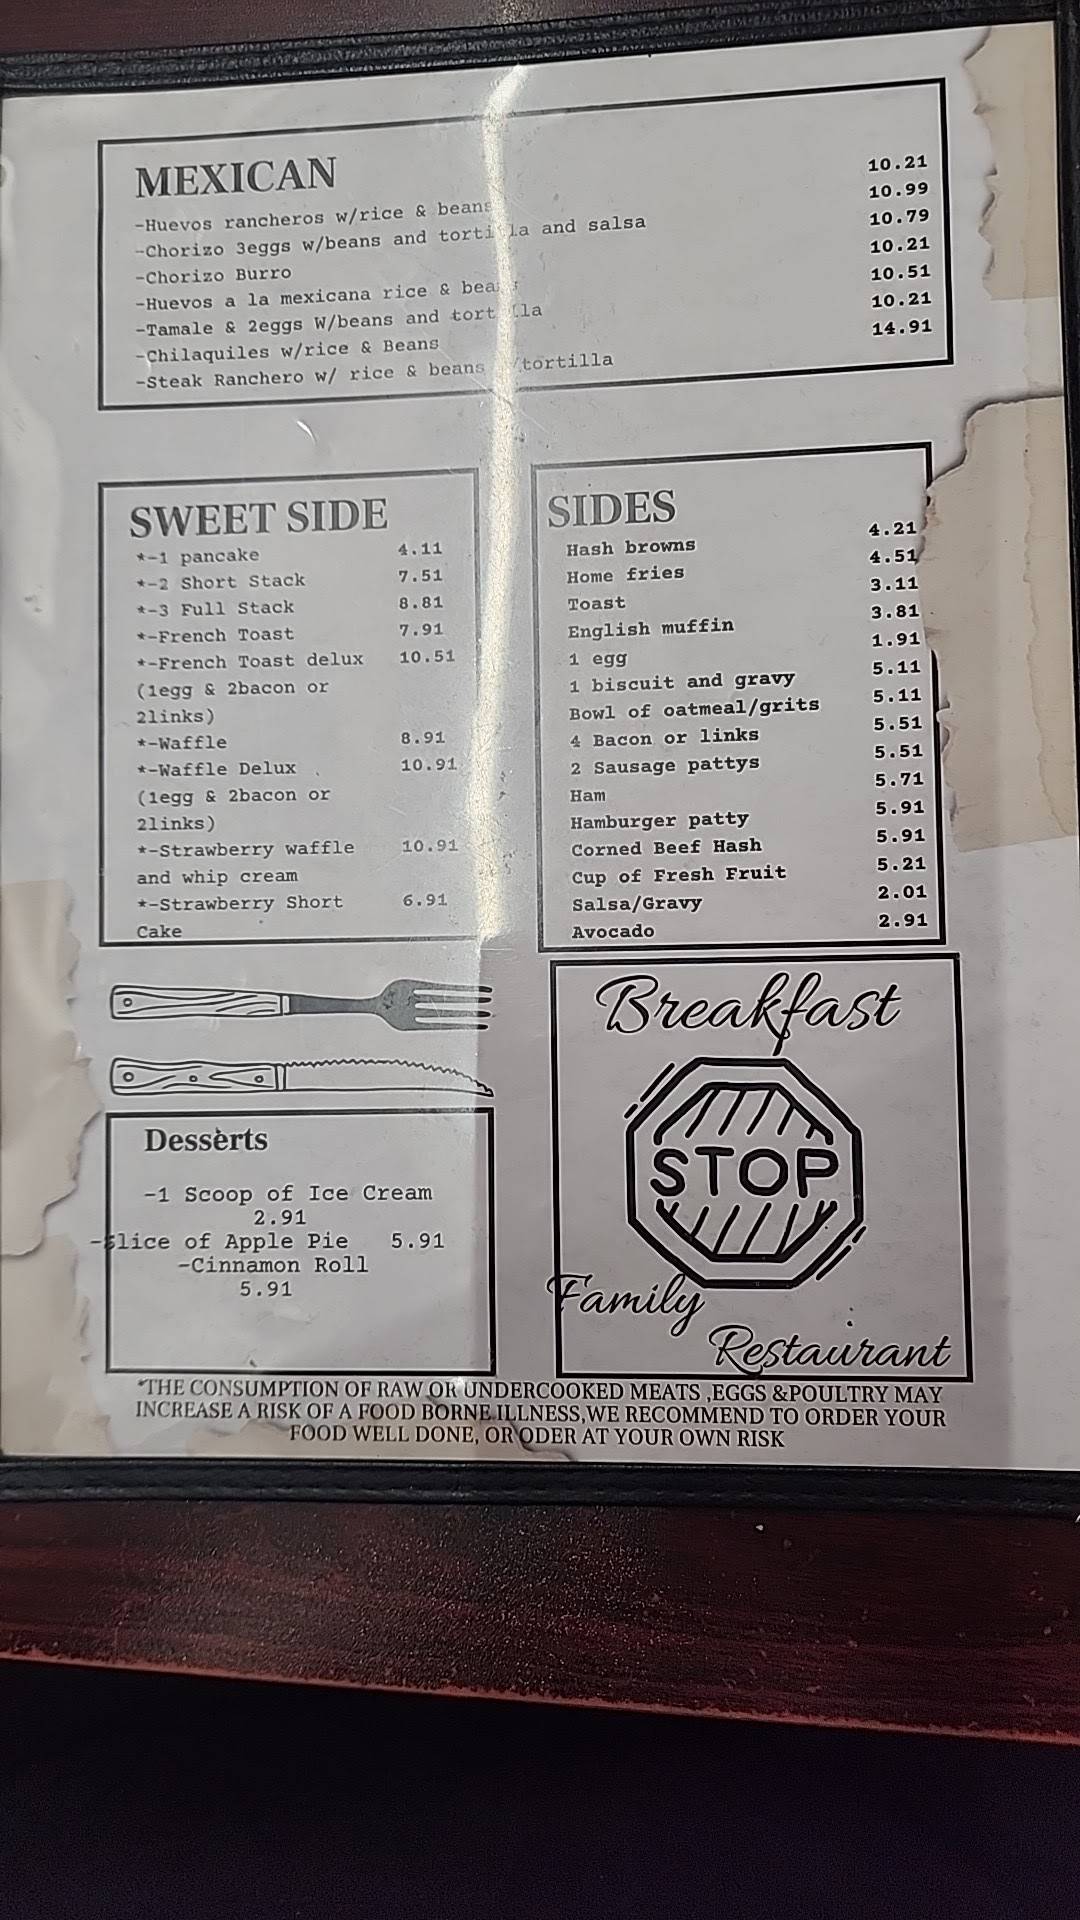 MEXICAN
-Huevos rancheros w/rice & beans 10.21
-Chorizo 3eggs w/beans and tortilla and salsa 10.99
-Chorizo Burro 10.79
-Huevos a la mexicana rice & beans 10.21
-Tamale & 2eggs W/beans and tortilla 10.51
-Chilaquiles w/rice & Beans 10.21
-Steak Ranchero w/ rice & beans /tortilla 14.91
SWEET SIDE
*-1 pancake 4.11
*-2 Short Stack 7.51
*-3 Full Stack 8.81
*-French Toast 7.91
*-French Toast delux 10.51
(1egg & 2bacon or
2links)
*-Waffle 8.91
*-Waffle Delux 10.91
(1egg & 2bacon or
2links)
*-Strawberry waffle 10.91
and whip cream
*-Strawberry Short 6.91
Cake
SIDES
Hash browns 4.21
Home fries 4.51
Toast 3.11
English muffin 3.81
1 egg 1.91
1 biscuit and gravy 5.11
Bowl of oatmeal/grits 5.11
4 Bacon or links 5.51
2 Sausage pattys 5.51
Ham 5.71
Hamburger patty 5.91
Corned Beef Hash 5.91
Cup of Fresh Fruit 5.21
Salsa/Gravy 2.01
Avocado 2.91
Desserts
-1 Scoop of Ice Cream
2.91
-Slice of Apple Pie 5.91
-Cinnamon Roll
5.91
Breakfast
STOP
Family
Restaurant
*THE CONSUMPTION OF RAW OR UNDERCOOKED MEATS ,EGGS &POULTRY MAY
INCREASE A RISK OF A FOOD BORNE ILLNESS,WE RECOMMEND TO ORDER YOUR
FOOD WELL DONE, OR ODER AT YOUR OWN RISK